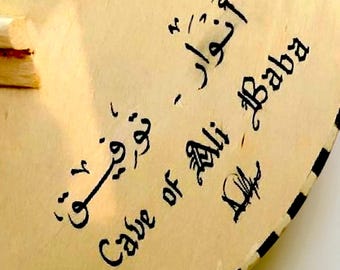 أنوار - توفيق
Cave of Ali Baba